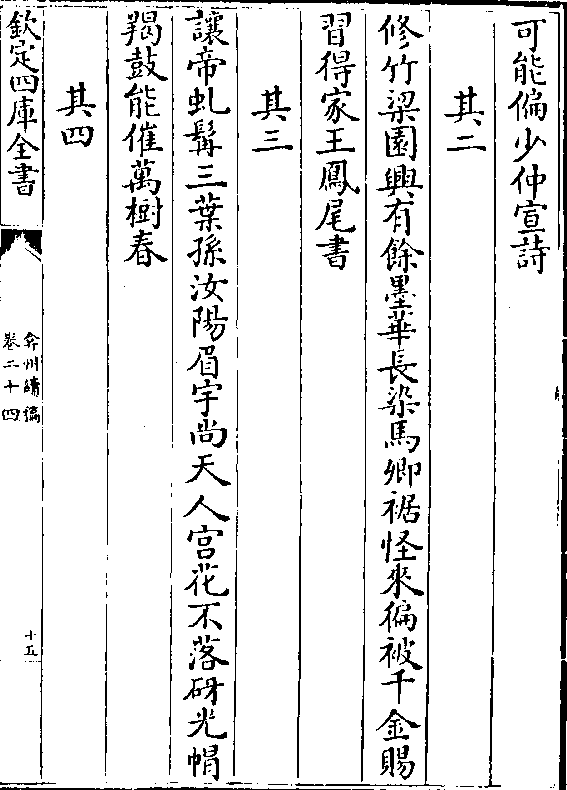 可能偏少仲宣詩
其二
修竹梁園興有餘墨華長染馬卿裾怪來徧被千金賜
習得家王鳳尾書
其三
讓帝虬髯三葉孫汝陽眉宇尚天人宮花不落砑光帽
羯鼓能催萬樹春
其四
欽定四庫全書
弇州續稿
卷二十四
十五